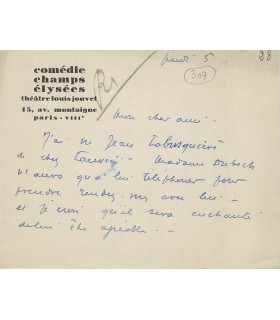 comédie
champs
élysées
théâtre louis jouvet
15, av. montaigne
paris - VIIIe
jeudi 5
307
38
Mon cher ami -
J'ai vu Jean Labusquière
de chez Lanvin - Madame
n'aura qu'à lui téléphoner pour
prendre rendez-vous avec lui -
et je crois qu'il sera enchanté
de lui être agréable -